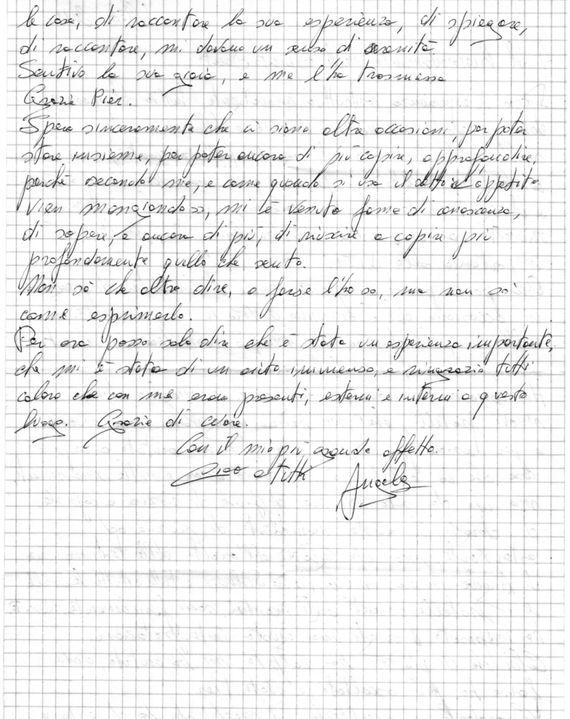 le cose, di raccontare la sua esperienza, di spiegare,
di raccontare, mi davano un senso di serenità
Sentivo la sua gioia, e me l'ha trasmessa
Grazie Pier.
Spero sinceramente che ci siano altre occasioni, per poter
stare, insieme, per poter ancora di più capire, approfondire,
perché secondo me, e come quando si usa il detto l'appetito
vien mangiandoss, mi è venuta fame di conoscenza,
di sapere, e ancora di più, di riuscire a capire più
profondamente quello che sento.
Non sò che altro dire, o forse l'ho so, ma non so
come esprimerlo.
Per ora posso solo dire che è stata un esperienza importante,
che mi è stata di un aiuto immenso, e ringrazio tutti
coloro che con me erano presenti, esterni e interni a questo
luogo. Grazie di cuore.
Con il mio più grande affetto.
Ciao a tutti Angelo